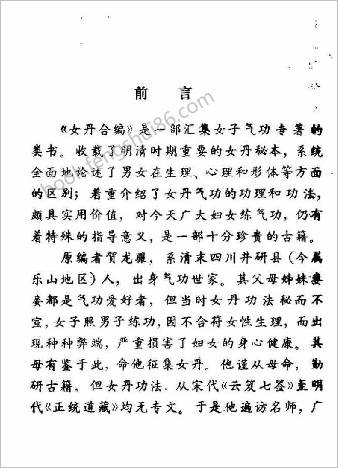 前言
《女丹合编》是一部汇集女子气功专著的
类书。收载了明清时期重要的女丹秘本，系统
全面地论述了男女在生理、心理和形体等方面
的区别；着重介绍了女丹气功的功理和功法，
颇具实用价值，对今天广大妇女练气功，仍有
着特殊的指导意义，是一部十分珍贵的古籍。
原编者贺龙骧，系清末四川井研县（今属
乐山地区）人，出身气功世家。其父母姊妹妻
妾都是气功爱好者，但当时女丹功法秘而不
宣，女子照男子练功，因不合符女性生理，而出
现种种弊端，严重损害了妇女的身心健康。其
母有鉴于此，命他征集女丹。他谨从母命，勤
研古籍，但女丹功法，从宋代《云笈七签》至明
代《正统道藏》均无专文。于是他遍访名师，广
book.fengshui86.com